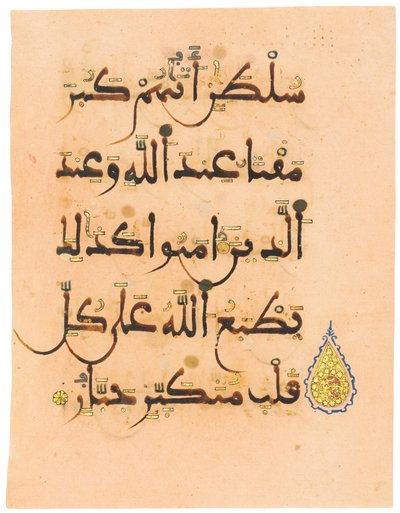 سُلْطَٰنٍ أَتَىٰهُمْ كَبُرَ
مَقْتًا عِندَ ٱللَّهِ وَعِندَ
ٱلَّذِينَ ءَامَنُوا۟ كَذَٰلِكَ
يَطْبَعُ ٱللَّهُ عَلَىٰ كُلِّ
قَلْبِ مُتَكَبِّرٍ جَبَّارٍ